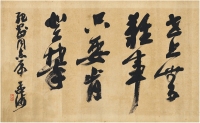 世上無
難事
只要肯
登攀
同志屬